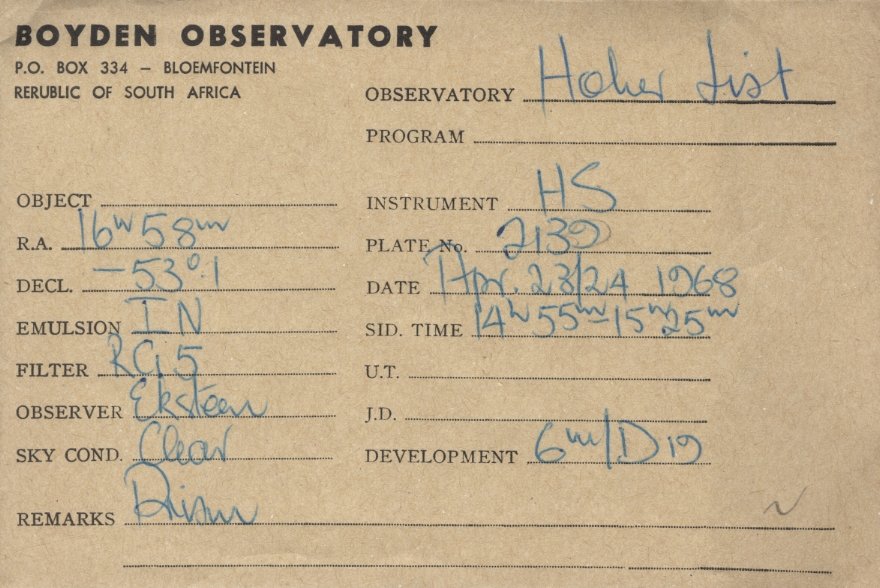 BOYDEN OBSERVATORY
P.O. BOX 334 – BLOEMFONTEIN
RERUBLIC OF SOUTH AFRICA
OBSERVATORY Hoher List
PROGRAM
OBJECT
R.A. 16h 58m
DECL. -53°.1
EMULSION IN
FILTER RG5
OBSERVER Eksteen
SKY COND. Clear
REMARKS Prism
INSTRUMENT HS
PLATE No. 2139
DATE Apr. 23/24 1968
SID. TIME 14h 55m-15h 25m
U.T.
J.D.
DEVELOPMENT 6m/D19